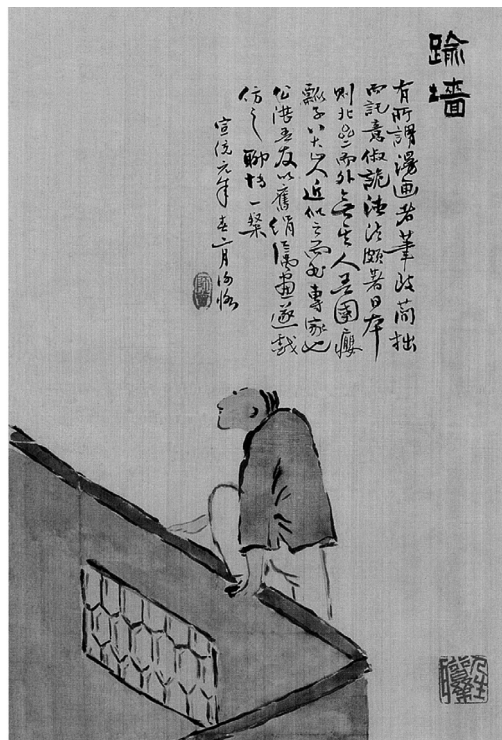 踰墻
有所謂漫画者筆致簡拙
而託意俶詭涵法頗著日本
則北齋而外無其人吾國癭
瓢子八大山人近似之而非專家也
公湛吾友以舊絹屬畫遂戲
仿之聊博一粲
宣統元年春二月